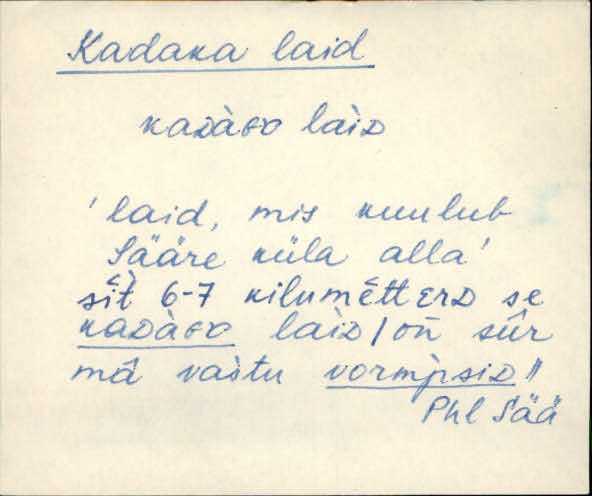 Kadaka laid
kaᴅàɢᴏ laìᴅ
'laid, mis kuulub
Sääre küla alla'
sìt̀ 6-7 kilumètt ᴇʀᴅ se
kaᴅàɢᴏ laìᴅ / on̄ sûr
mâ vaìtu vormp̀siᴅ //
Phl Sää